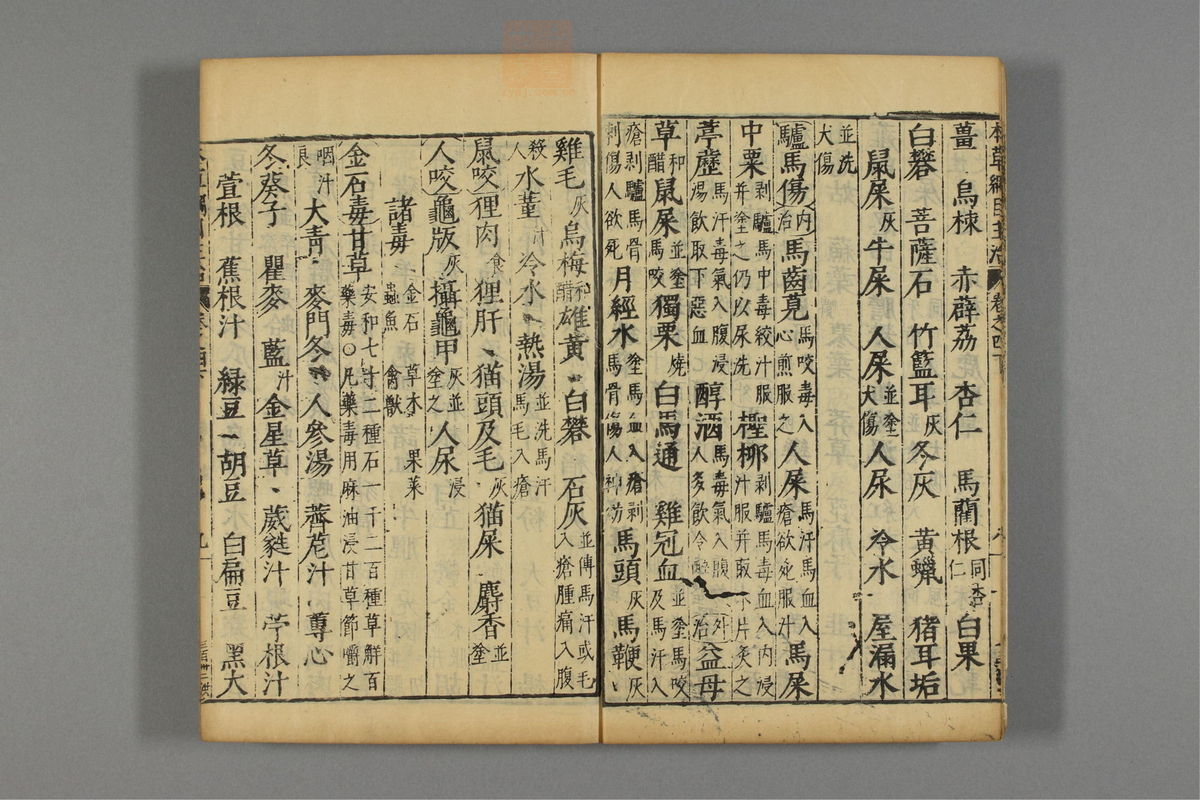 本草綱目主治 卷之四下
薑 烏柬 赤薜荔 杏仁 馬藺根同杏仁 白果
白礬 菩薩石 竹籃耳灰 冬灰 黃蠟 猪耳垢
鼠屎灰 牛屎 人屎並塗犬傷 人尿 冷水 屋漏水
並洗犬傷
驢馬傷內治 馬齒莧馬咬毒入心煎服之 人屎馬汗馬血入瘡欲死服汁 馬屎
中栗剥驢馬中毒絞汁服并塗之仍以尿洗 檉柳剥驢馬毒血入內浸汁服并取木片炙之
葶藶馬汗毒氣入腹浸湯飲取下惡血 醇酒馬毒氣入腹人多飲冷 外治 益母
草和醋 鼠屎並塗馬咬 獨栗燒 白馬通 雞冠血並塗馬咬及馬汗入
瘡剥驢馬骨刺傷人欲死 月經水塗馬血入瘡剥馬骨傷人神効 馬頭灰 馬鞭灰
雞毛灰 烏梅和醋 雄黃 白礬 石灰並傅馬汗或毛入瘡腫痛入腹
殺人 水堇汁 冷水 熱湯並洗馬汗馬毛入瘡
鼠咬 狸肉食 狸肝 猫頭及毛灰 猫屎 麝香並塗
人咬 龜版灰 攝龜甲灰並塗之 人尿浸
諸毒 金石 草木 果菜 蟲魚 禽獸
金石毒 甘草安和七十二種石一千二百種草解百藥毒〇凡藥毒用麻油浸甘草節嚼之
咽汁良 大青 麥門冬 人參湯 薺苨汁 蓴心
冬葵子 瞿麥 藍汁 金星草 葳蕤汁 苧根汁
萱根 蕉根汁 綠豆 胡豆 白扁豆 黑大